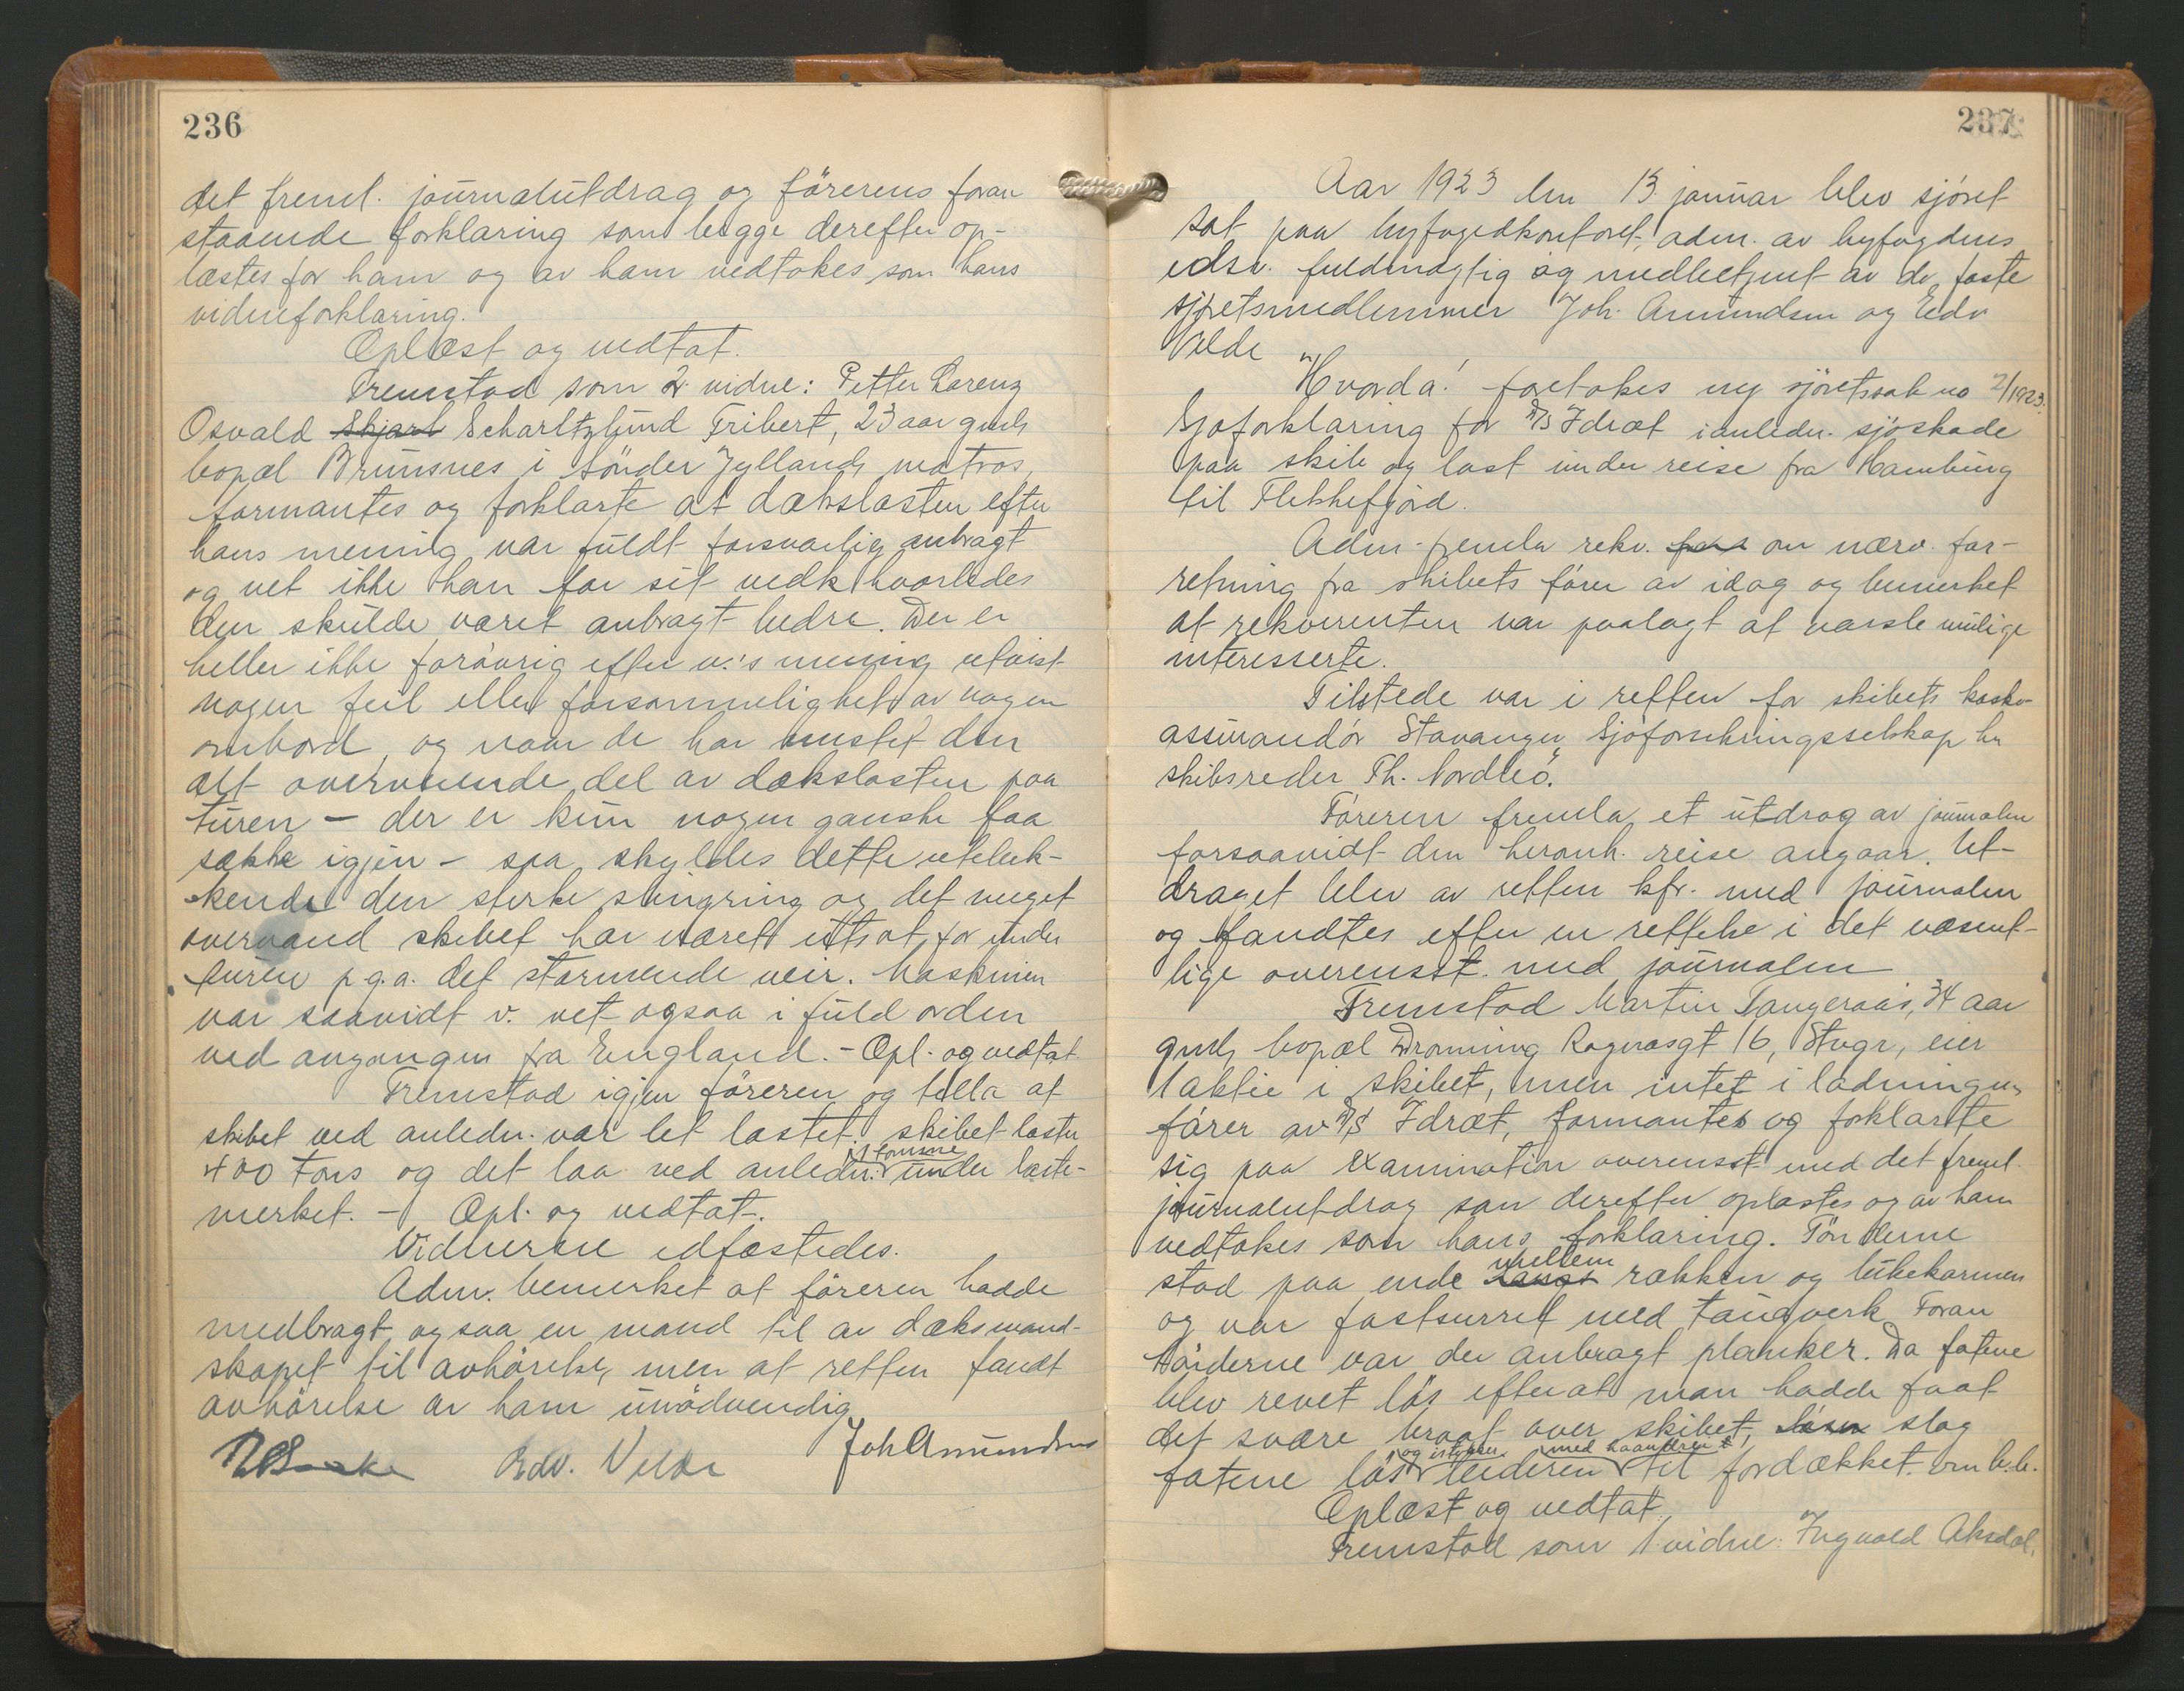 236
det freml. journalutdrag og förerens foran
staaende forklaring som begge derefter op-
læstes for ham og av ham vedtokes som hans
vidneforklaring.
Oplæst og vedtat.
Fremstod som 2. vidne: Petter Lorenz
Osvald Skjarl Scharltzlund Fribert, 23 aar gml,
bopæl Brunsnes i Sönder Jylland, matros,
formantes og forklarte at dækslasten efter
hans mening var fuldt forsvarlig anbragt
og vet ikke han for sit vedk hvorledes
den skulde været anbragt bedre. Der er
heller ikke forövrig efter v.'s mening utvist
nogen feil eller forsømmelighet av nogen
ombord, og naar de har mistet den
alt overveiende del av dækslasten paa
turen – der er kun nogen ganske faa
sække igjen – saa skyldes dette uteluk-
kende den sterke slingring og det meget
overvand skibet har været utsat for under
turen p.g.a. det stormende veir. Maskinen
var saavidt v. vet ogsaa i fuld orden
ved avgangen fra England. – Opl. og vedtat
Fremstod igjen föreren og tilla at
skibet ved anledn. var let lastet. skibet laster
400 tons og det laa ved anledn. 11 tomme under laste-
merket. – Opl. og vedtat.
Vidnerne edfæstedes.
Adm. bemerket at föreren hadde
medbragt ogsaa en mand til av dæksmand-
skapet til avhörelse, men at retten fandt
avhörelse av ham unödvendig
Edv. Velde Joh Amundsen
237
Aar 1923 den 13. januar blev sjöret
sat paa byfogedkontoret, adm. av byfogdens
edsv. fuldmægtig og medbetjent av de faste
sjøretsmedlemmer Joh. Amundsen og Edv
Velde
Hvorda! foretokes ny sjöretssak no 2/1923.
Sjøforklaring for D/S Idræt i anledn. sjöskade
paa skib og last under reise fra Hamburg
til Flekkefjord.
Adm. fremla rekv. for om nærv. for-
retning fra skibets förer av idag og bemerket
at rekvirenten var paalagt at varsle mulige
interesserte.
Tilstede var i retten for skibets kasko-
assurandör Stavanger Sjöforsikringsselskap hr
skibsreder Th. Nordbö.
Föreren fremla et utdrag av journalen
forsaavidt den heromh. reise angaar. Ut-
draget blev av retten kfr. med journalen
og fandtes efter en rettelse i det væsent-
lige overensst. med journalen
Fremstod Martin Tangeraas, 34 aar
gml, bopæl Dronning Ragnasgt 16, Stvgr, eier
1 aktie i skibet, men intet i ladningen,
förer av D/S Idræt, formantes og forklarte
sig paa examination overensst. med det freml.
journalutdrag som derefter oplæstes og av ham
vedtokes som hans forklaring. Tönderne
stod paa ende langs mellem rækken og lukekarmen
og var fastsurret med taugverk. Foran
tönderne var der anbragt planker. Da fatene
blev revet lös efter at man hadde faat
det svære braat over skibet, slog
fatene lös og istykker leideren med haandren til fordækket om b.b.
Oplæst og vedtat.
Fremstod som 1. vidne: Ingvald Aksdal,